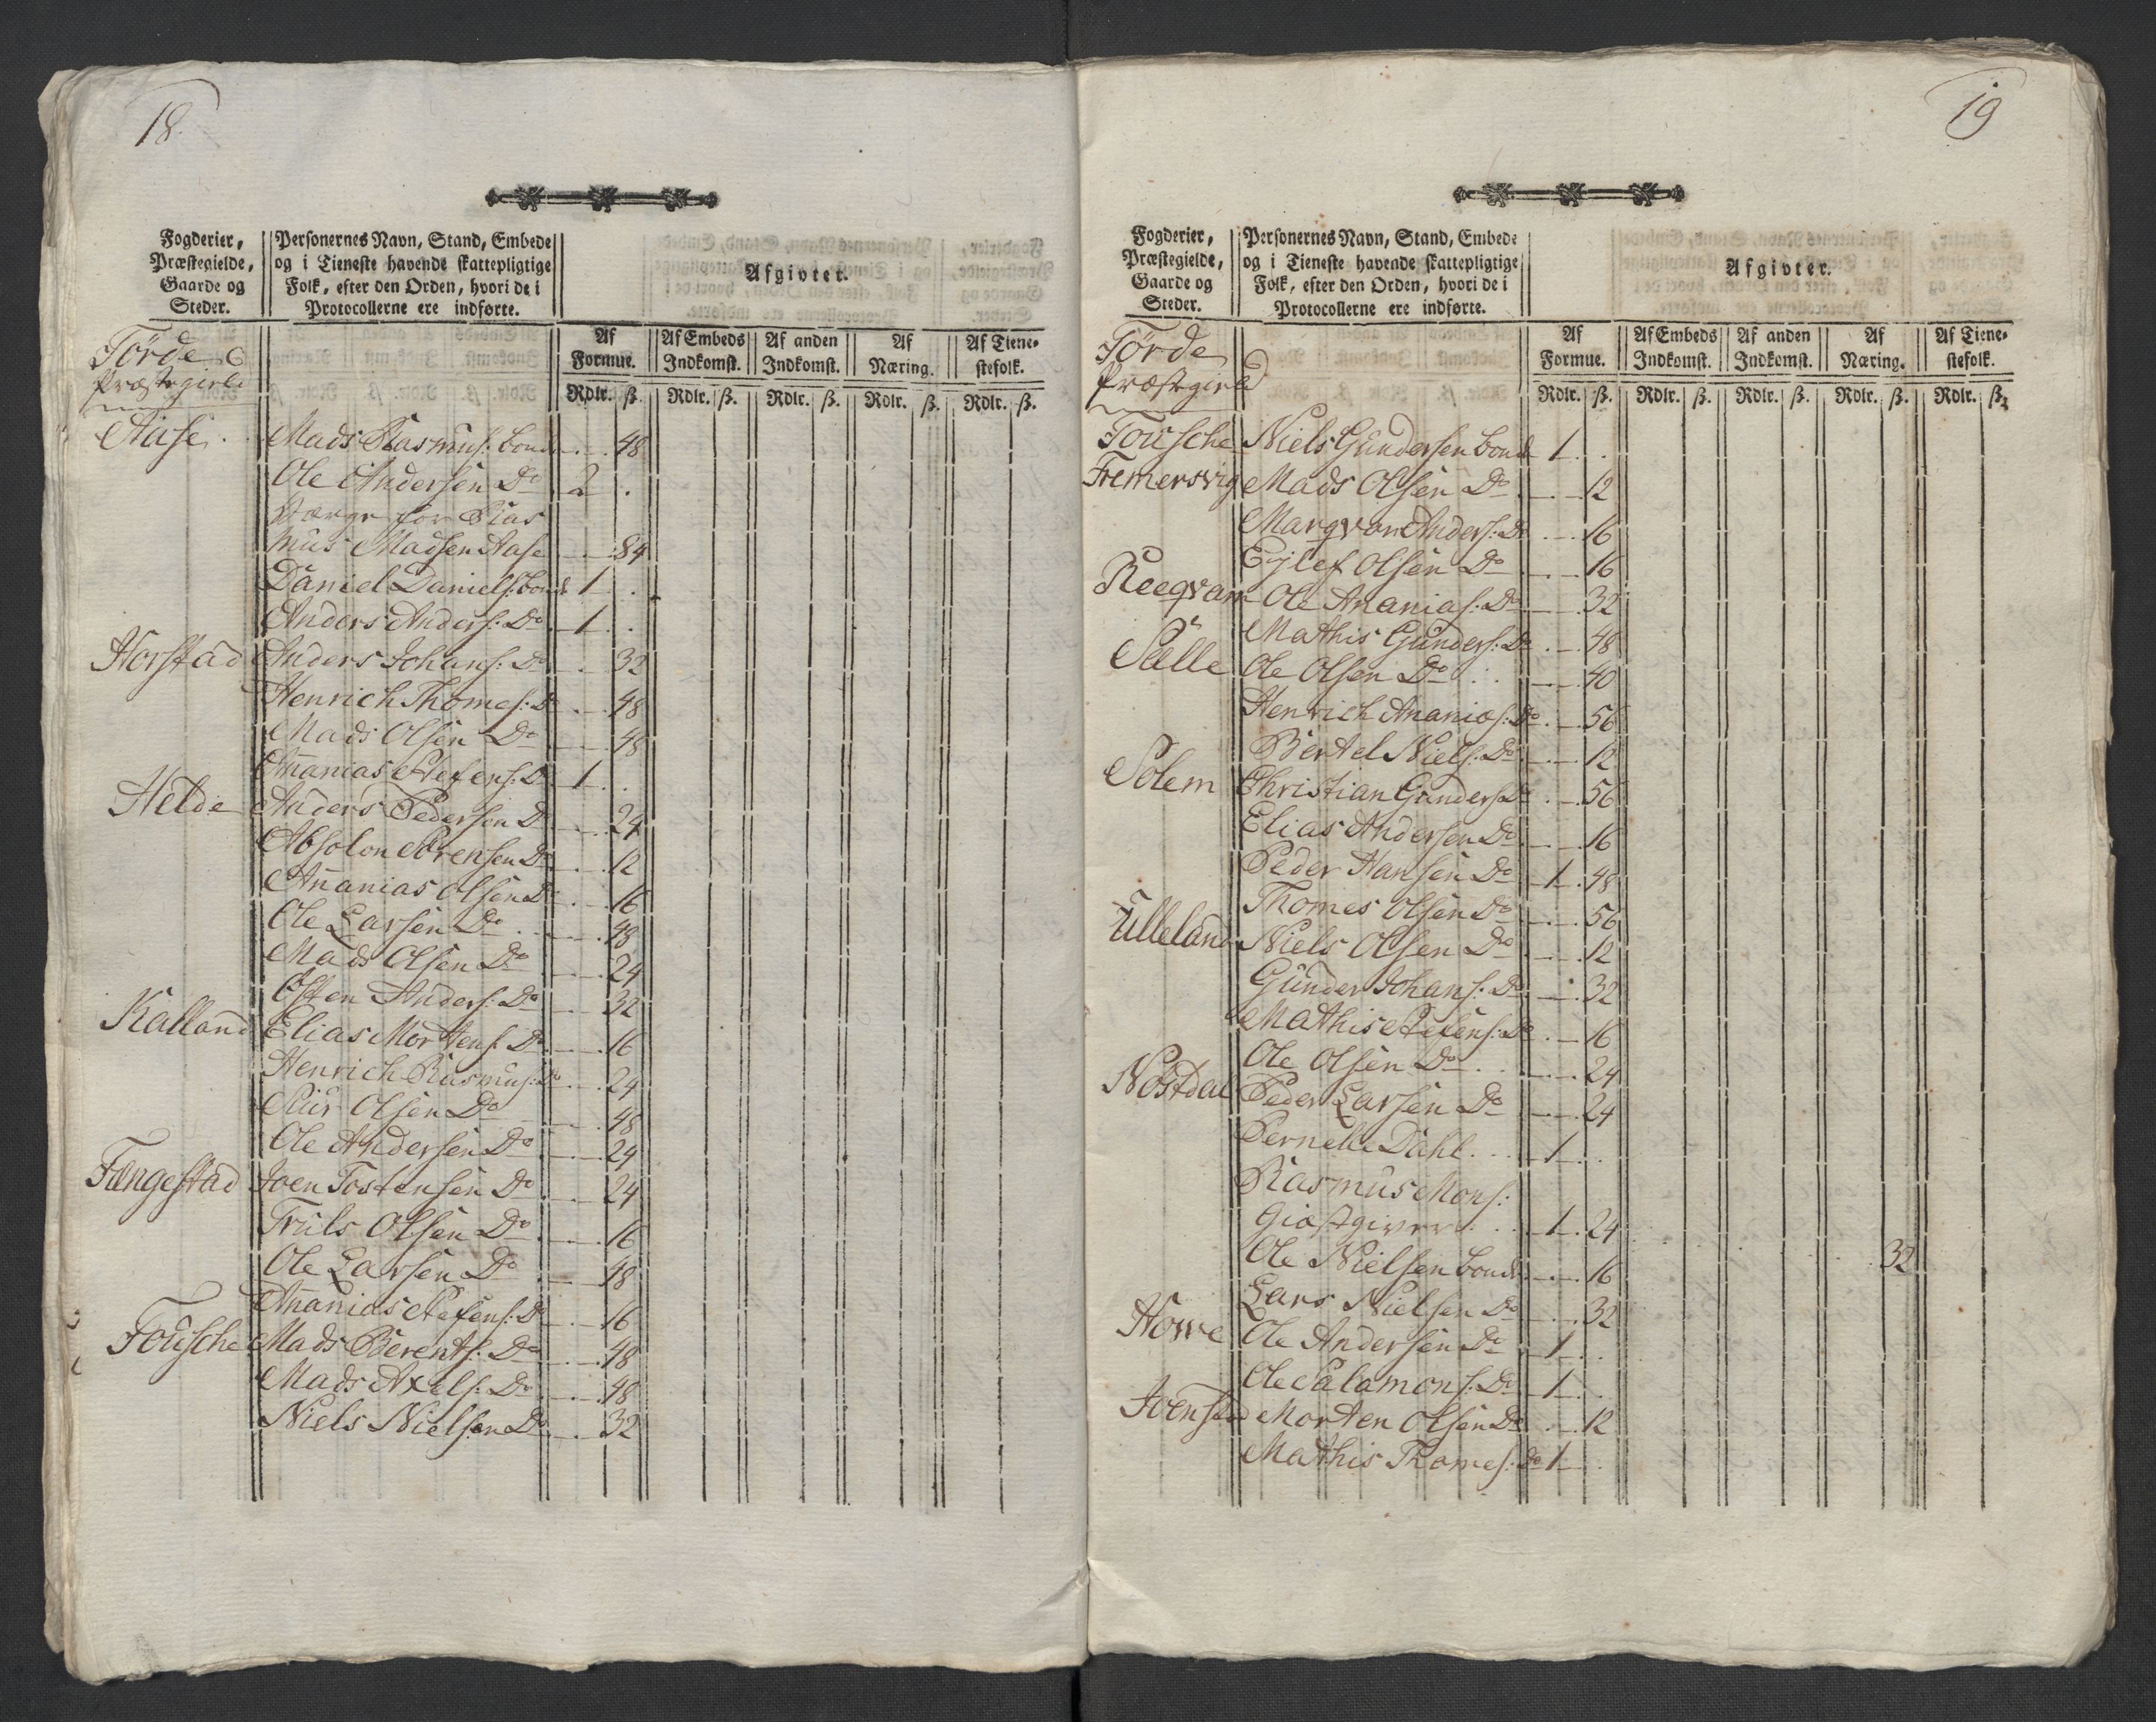 18.
Fogderier,
Præstegielde,
Gaarde og
Steder.
Personernes Navn, Stand, Embede
og i Tieneste havende skattepligtige
Folk, efter den Orden, hvori de i
Protocollerne ere indførte.
Afgivter.
Af
Formue.
Af Embeds
Indkomst.
Af anden
Indkomst.
Af
Næring.
Af Tiene-
stefolk.
Rdlr. ß. Rdlr. ß. Rdlr. ß. Rdlr. ß. Rdlr. ß.
Förde
Præstegield
Aase. Mads Rasmus: bonde . 48
Ole Andersen Do 2 .
Værge for Ras
mus Madsen Aase 84
Daniel Daniels: bonde 1 .
Anders Anders: Do 1 .
Horstad Anders Johans: Do . 32
Henrich Thomes: Do . 48
Mads Olsen Do 48
Ananias Stefens: Do 1 .
Helde Anders Pedersen Do 24
Absolon Sörensen Do 12
Ananias Olsen Do 16
Ole Larsen Do 48
Mads Olsen Do 24
Osten Anders: Do 32
Kalland Elias Mortens: Do 16
Henrich Rasmus: Do 24
Siur Olsen Do 48
Ole Andersen Do 24
Fængestad Joen Tostensen Do 24
Truls Olsen Do 16
Ole Larsen Do 48
Ananias Stefens: Do 16
Fousche Mads Berents: Do 48
Mads Axels: Do 48
Niels Nielsen Do 32
19
Fogderier,
Præstegielde,
Gaarde og
Steder.
Personernes Navn, Stand, Embede
og i Tieneste havende skattepligtige
Folk, efter den Orden, hvori de i
Protocollerne ere indførte.
Afgivter.
Af
Formue.
Af Embeds
Indkomst.
Af anden
Indkomst.
Af
Næring.
Af Tiene-
stefolk.
Rdlr. ß. Rdlr. ß. Rdlr. ß. Rdlr. ß. Rdlr. ß.
Förde
Præstegield
Fousche Niels Gundersen bonde 1 .
Fremersvig Mads Olsen Do 12
Marqvar Anders: Do 16
Ejlef Olsen Do 16
Reeqvam Ole Ananias: Do 32
Mathis Gunders: Do 48
Sælle Ole Olsen Do 40
Henrich Ananias: Do 56
Bertel Niels: Do 12
Solem Christian Gunders: Do 56
Elias Andersen Do 16
Peder Hansen Do 1 . 48
Thomes Olsen Do 56
Ulleland Niels Olsen Do 12
Gunder Johans: Do 32
Mathis Stefens: Do 16
Ole Olsen Do 24
Nöstdal Peder Larsen Do 24
Pernelle Dahl 1 .
Rasmus Mons:
Giæstgiver 1 . 24
Ole Nielsen bonde 16 32
Lars Nielsen Do 32
Howe Ole Andersen Do 1 .
Ole Salamons: Do 1 .
Joenstad Morten Olsen Do 12
Mathis Thomes: Do 1 .